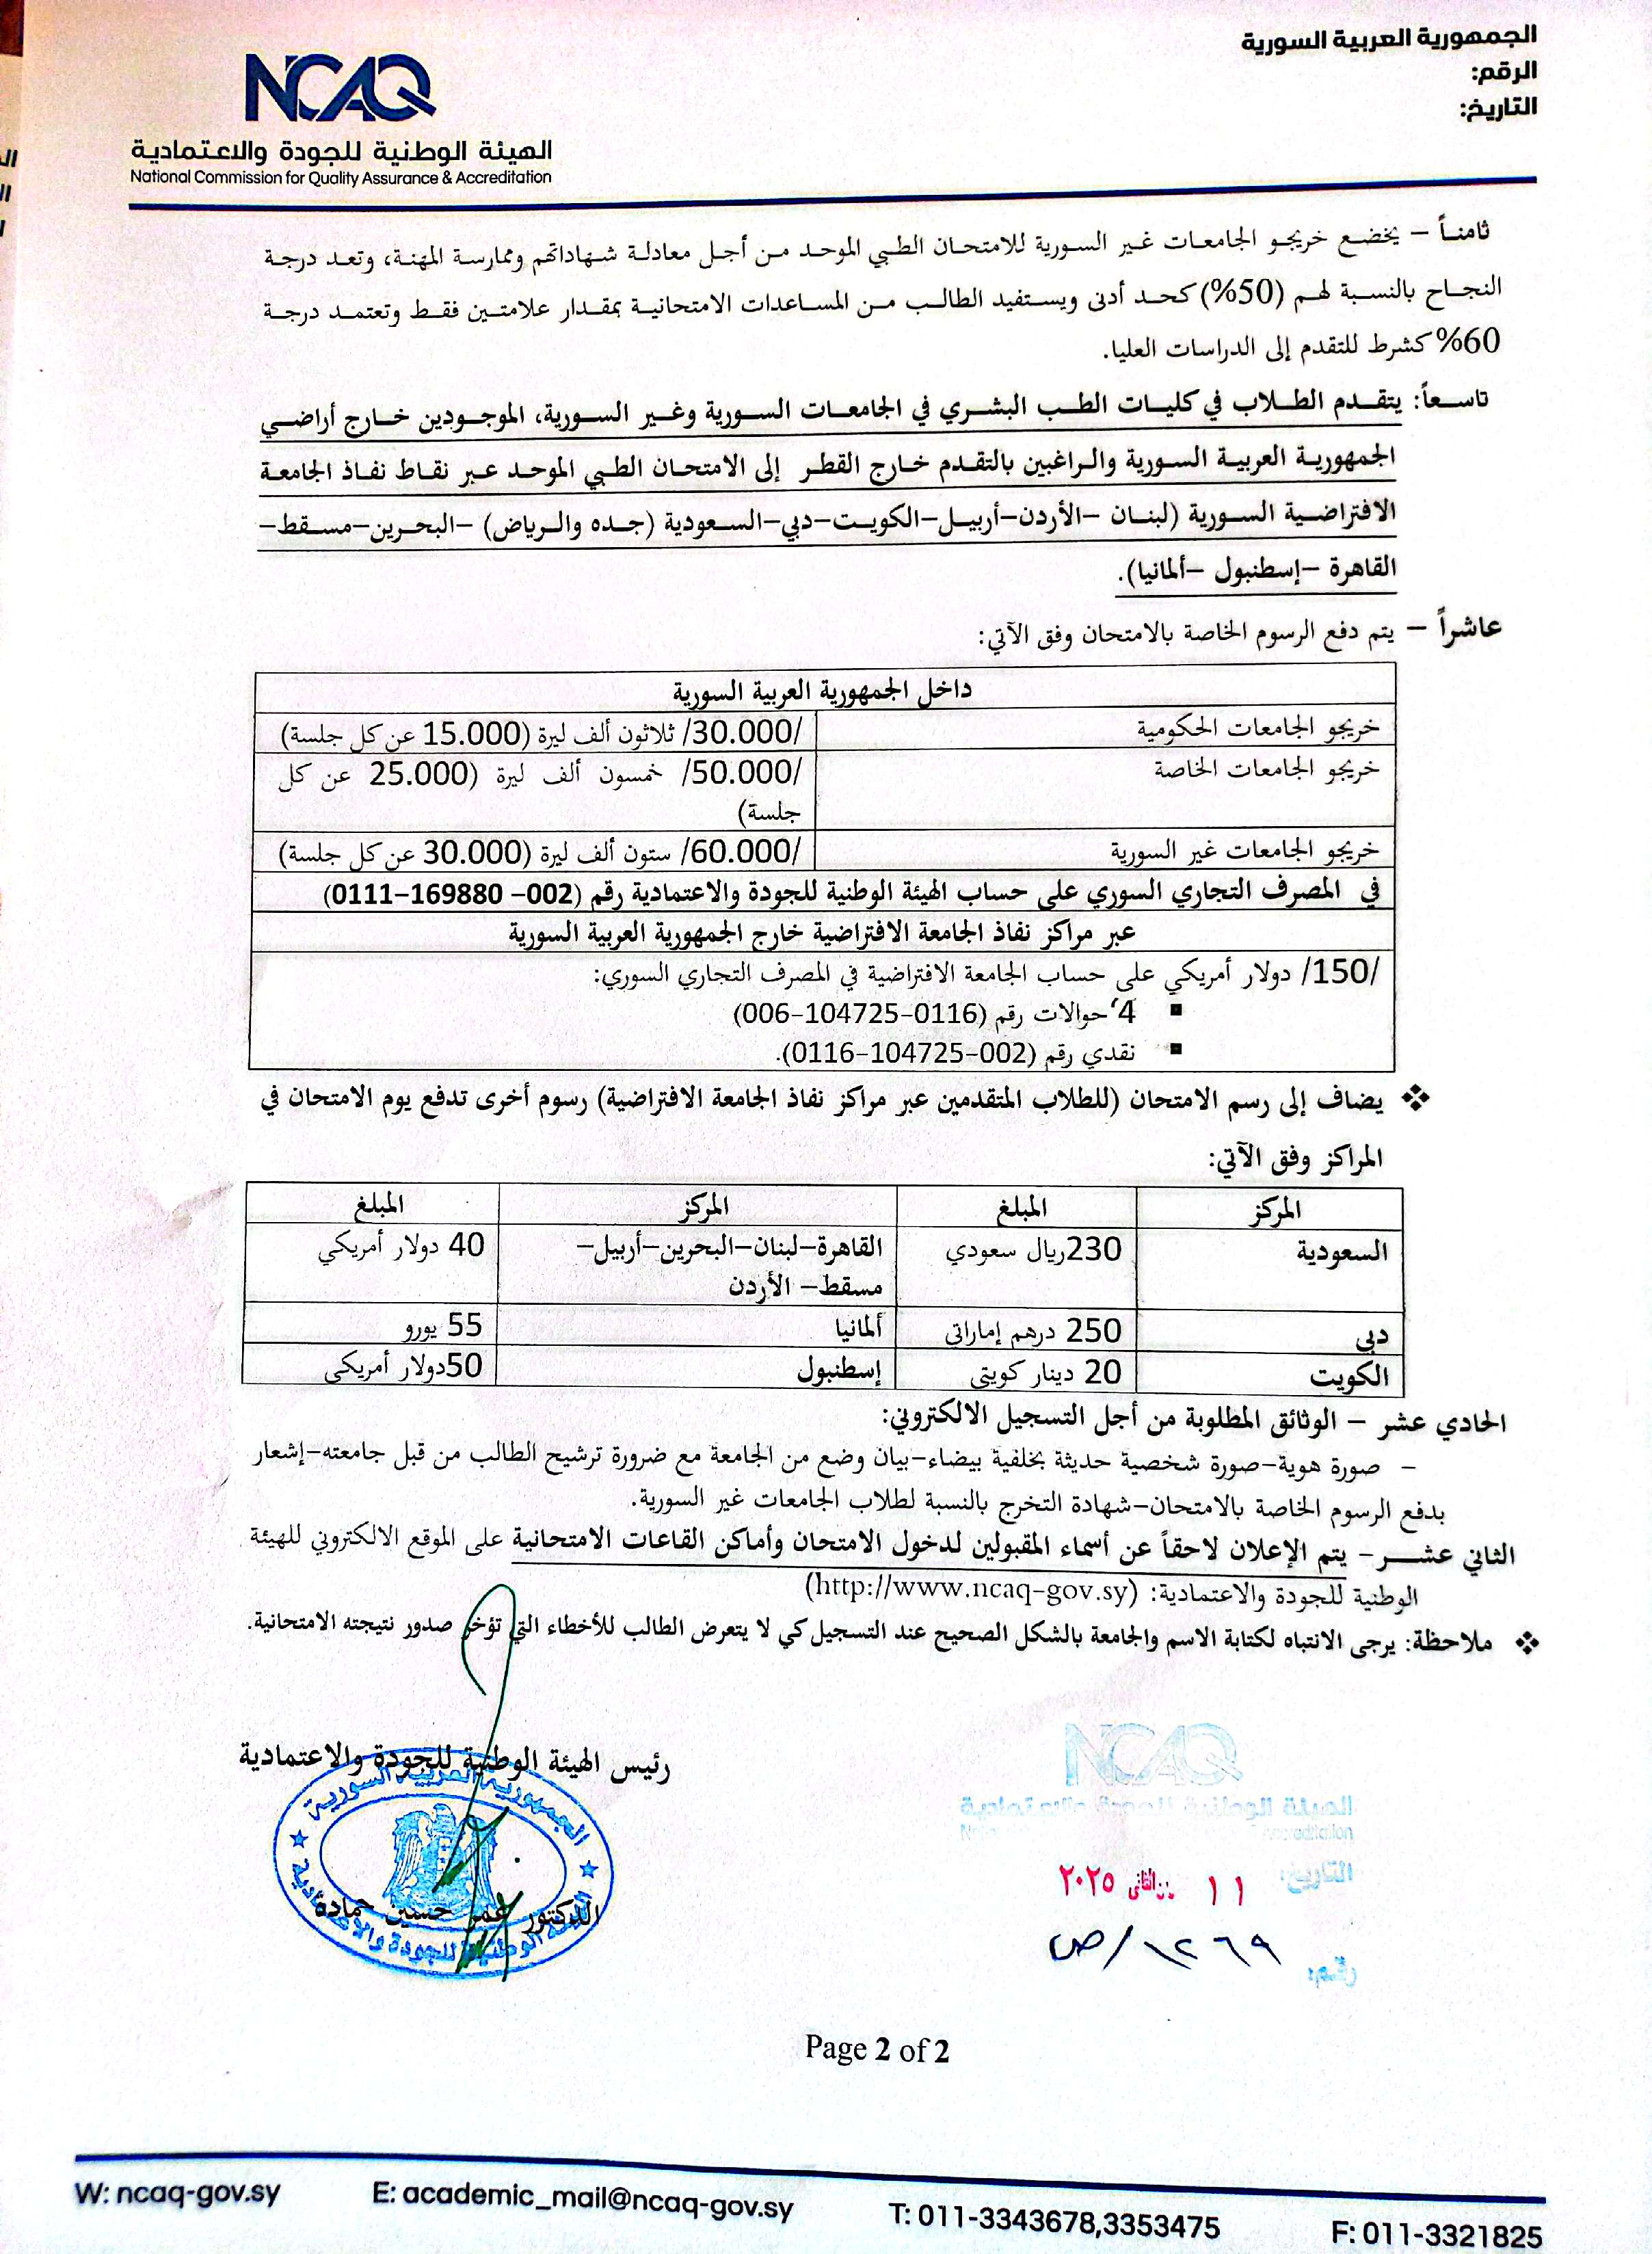 الجمهورية العربية السورية
الرقم:
التاريخ:
NCAQ
الهيئة الوطنية للجودة والاعتمادية
National Commission for Quality Assurance & Accreditation
ثامناً – يخضع خريجو الجامعات غير السورية للامتحان الطبي الموحد من أجل معادلة شهاداتهم وممارسة المهنة، وتعد درجة
النجاح بالنسبة لهم (50%) كحد أدنى ويستفيد الطالب من المساعدات الامتحانية بمقدار علامتين فقط وتعتمد درجة
60% كشرط للتقدم إلى الدراسات العليا.
تاسعاً: يتقدم الطلاب في كليات الطب البشري في الجامعات السورية وغير السورية، الموجودين خارج أراضي
الجمهورية العربية السورية والراغبين بالتقدم خارج القطر إلى الامتحان الطبي الموحد عبر نقاط نفاذ الجامعة
الافتراضية السورية (لبنان –الأردن–أربيل–الكويت–دبي–السعودية (جده والرياض) –البحرين–مسقط–
القاهرة –إسطنبول –ألمانيا).
عاشراً – يتم دفع الرسوم الخاصة بالامتحان وفق الآتي:
داخل الجمهورية العربية السورية
خريجو الجامعات الحكومية /30.000/ ثلاثون ألف ليرة (15.000 عن كل جلسة)
خريجو الجامعات الخاصة /50.000/ خمسون ألف ليرة (25.000 عن كل
جلسة)
خريجو الجامعات غير السورية /60.000/ ستون ألف ليرة (30.000 عن كل جلسة)
في المصرف التجاري السوري على حساب الهيئة الوطنية للجودة والاعتمادية رقم (002- 169880-0111)
عبر مراكز نفاذ الجامعة الافتراضية خارج الجمهورية العربية السورية
/150/ دولار أمريكي على حساب الجامعة الافتراضية في المصرف التجاري السوري:
▪ 4 حوالات رقم (0116-104725-006)
▪ نقدي رقم (002-104725-0116).
❖ يضاف إلى رسم الامتحان (للطلاب المتقدمين عبر مراكز نفاذ الجامعة الافتراضية) رسوم أخرى تدفع يوم الامتحان في
المراكز وفق الآتي:
المركز المبلغ المركز المبلغ
السعودية 230ريال سعودي القاهرة–لبنان–البحرين–أربيل– 40 دولار أمريكي
مسقط– الأردن
دبي 250 درهم إماراتي ألمانيا 55 يورو
الكويت 20 دينار كويتي إسطنبول 50دولار أمريكي
الحادي عشر – الوثائق المطلوبة من أجل التسجيل الالكتروني:
– صورة هوية–صورة شخصية حديثة بخلفية بيضاء–بيان وضع من الجامعة مع ضرورة ترشيح الطالب من قبل جامعته–إشعار
بدفع الرسوم الخاصة بالامتحان–شهادة التخرج بالنسبة لطلاب الجامعات غير السورية.
الثاني عشر – يتم الإعلان لاحقاً عن أسماء المقبولين لدخول الامتحان وأماكن القاعات الامتحانية على الموقع الالكتروني للهيئة
الوطنية للجودة والاعتمادية: (http://www.ncaq-gov.sy)
❖ ملاحظة: يرجى الانتباه لكتابة الاسم والجامعة بالشكل الصحيح عند التسجيل كي لا يتعرض الطالب للأخطاء التي تؤخر صدور نتيجته الامتحانية.
رئيس الهيئة الوطنية للجودة والاعتمادية
الجمهورية العربية السورية
الدكتور عمر حسين حمادة
الهيئة الوطنية للجودة والاعتمادية
NCAQ
الهيئة الوطنية للجودة والاعتمادية
التاريخ:
١١ ت الثاني ٢٠٢٥
١٢٦٩/ص
Page 2 of 2
W: ncaq-gov.sy E: academic_mail@ncaq-gov.sy T: 011-3343678,3353475 F: 011-3321825